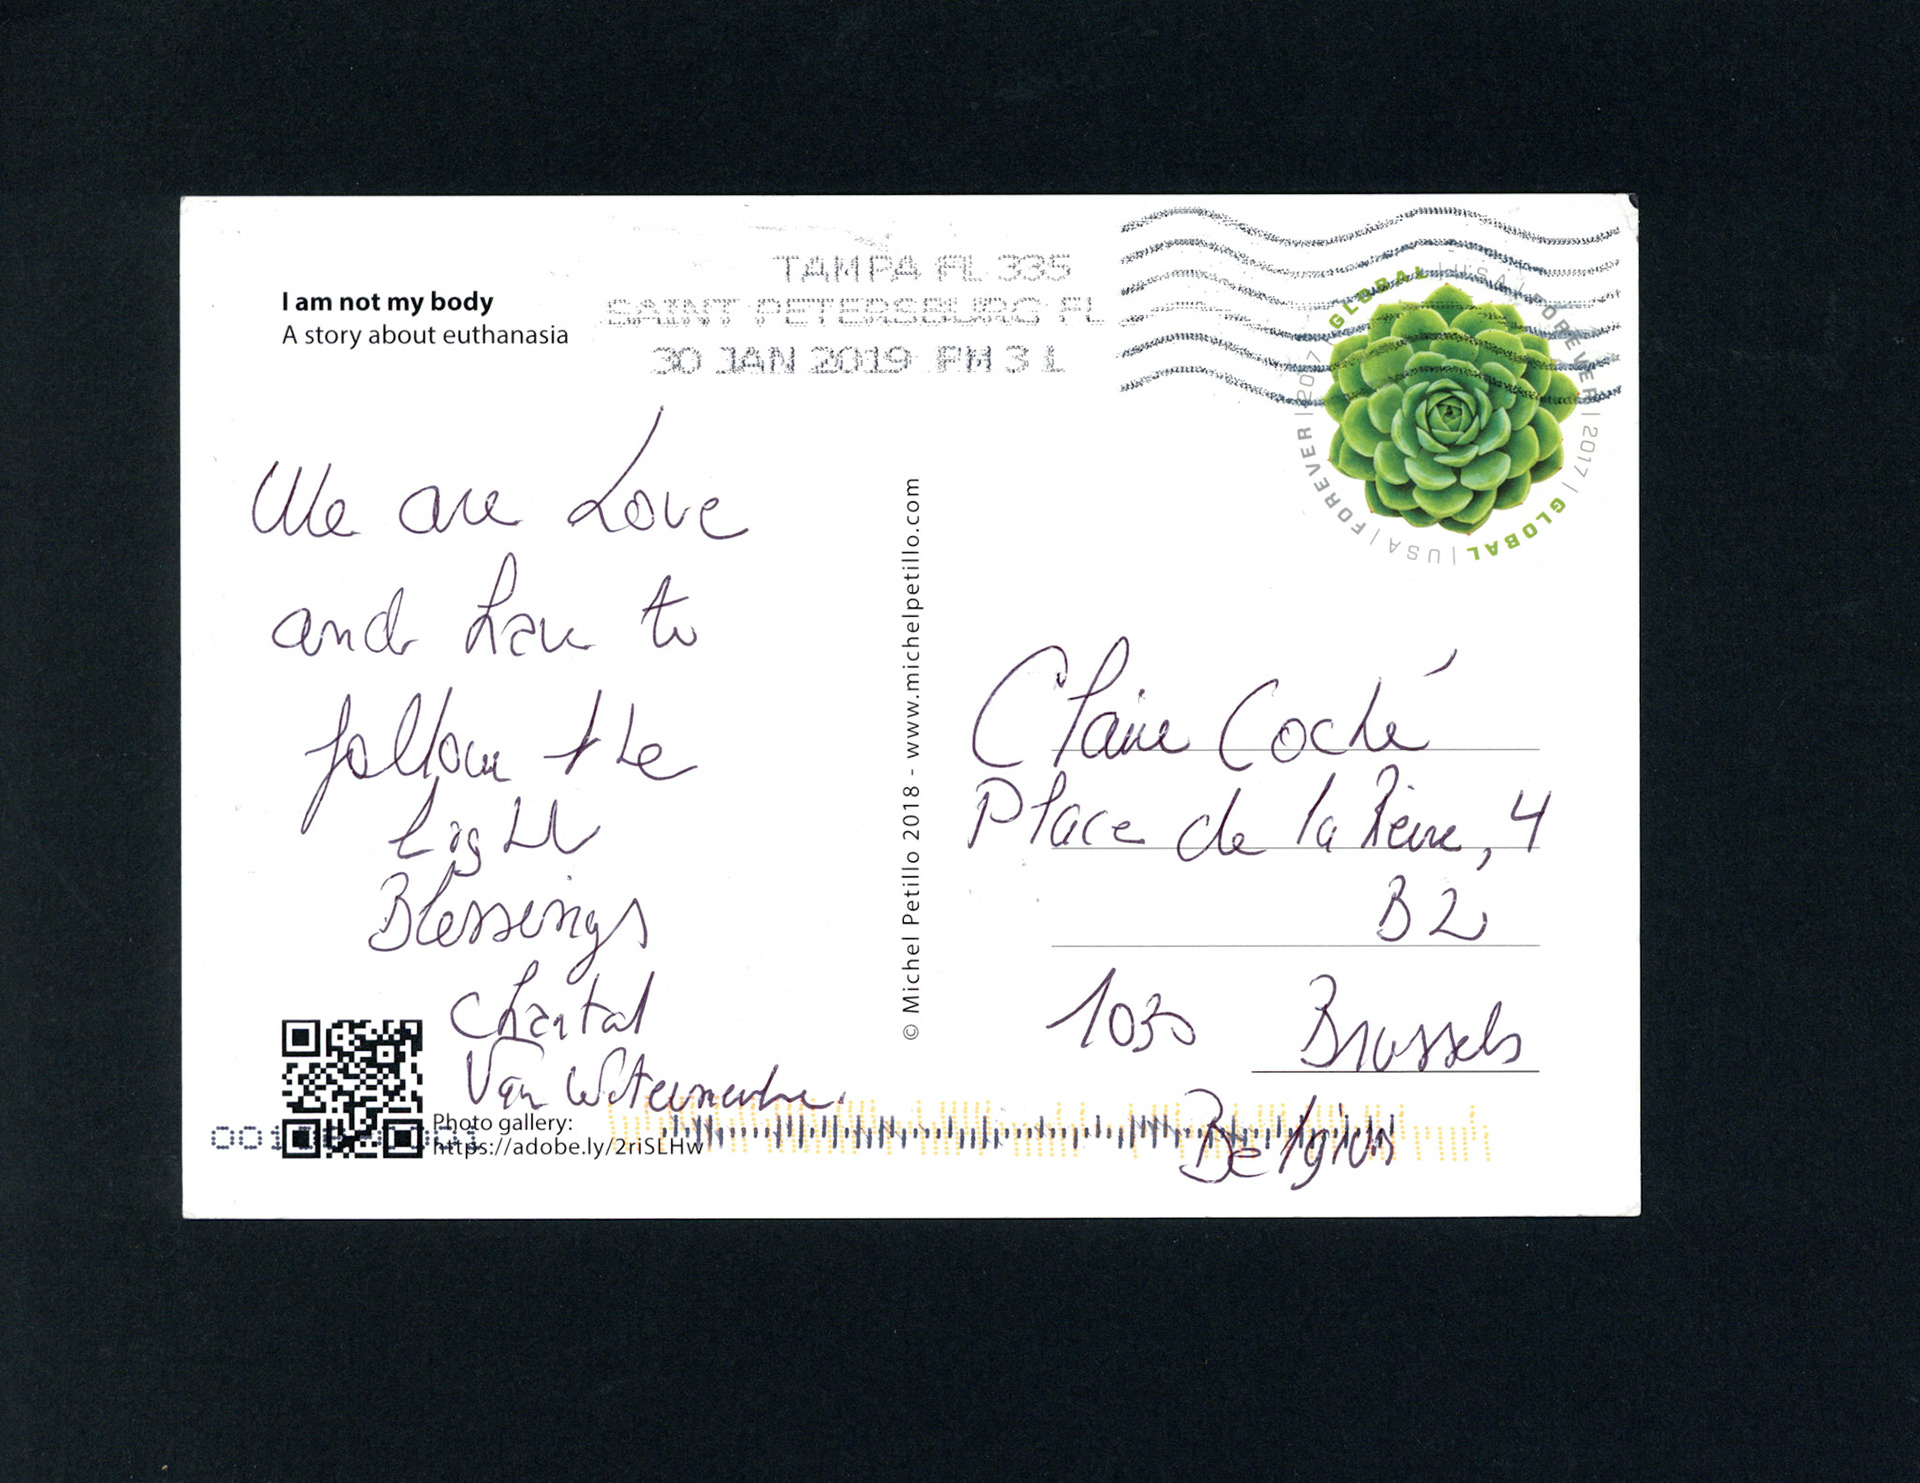 I am not my body
A story about euthanasia
TAMPA FL 335
SAINT PETERSBURG FL
30 JAN 2019 PM 3 L
GLOBAL | USA | FOREVER | 2017 | GLOBAL | USA | FOREVER | 2017
We are Love
and have to
follow the
Light
Blessings
Chantal
Van
© Michel Petillo 2018 - www.michelpetillo.com
Claire Coché
Place de la Reine, 4
B2
1030 Brussels
Belgium
Photo gallery:
https://adobe.ly/2riSLHw